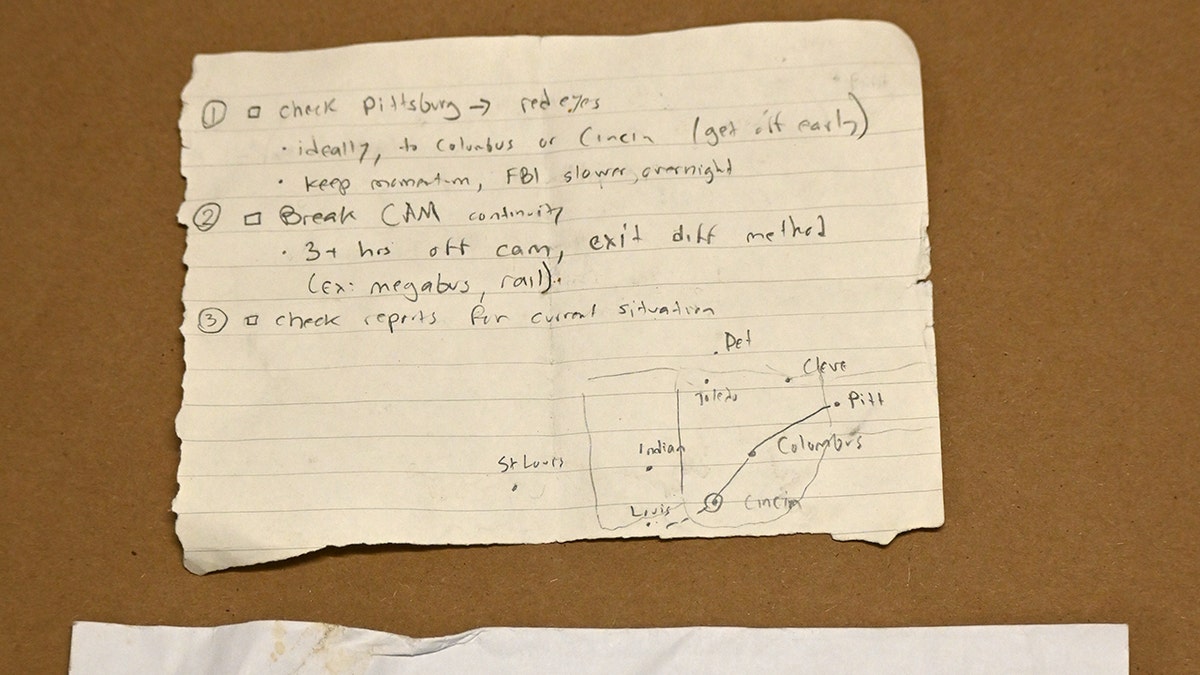 ① □ check pittsburg → red eyes
• ideally, to Columbus or Cincin (get off early)
• keep momentum, FBI slower overnight
② □ Break CAM continuity
• 3+ hrs off cam, exit diff method
(Ex: megabus, rail).
③ □ check reports for current situation
Det
Cleve
Toledo
Pitt
Columbus
Indian
St Louis
Cincin
Louis